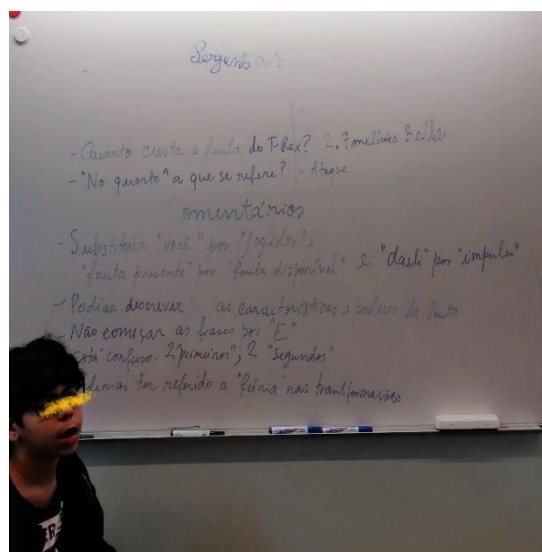 Perguntas
- Quanto custa a fruta do T-Rex? 2,7 milhões Belhe
- "No quarto" a que se refere? Ataque
Comentários
- Substituía "você" por "jogador",
"fruta presente" por "fruta disponível" e "dash" por "impulso"
- Podias descrever as características e poderes da fruta
- Não começar as frases por "E"
Está confuso: 2 "primeiros", 2 "segundos"
ter referido a "fúria" nas transformações